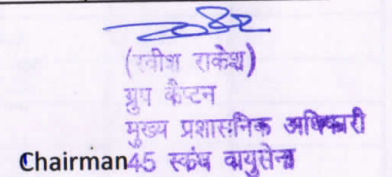 (रवीश राकेश)
ग्रुप कैप्टन
मुख्य प्रशासनिक अधिकारी
Chairman 45 स्कंध वायुसेना